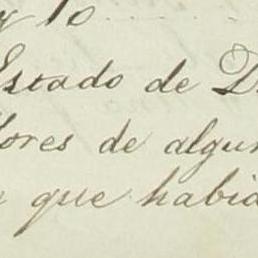 Estado de D
lores de algun
que habia